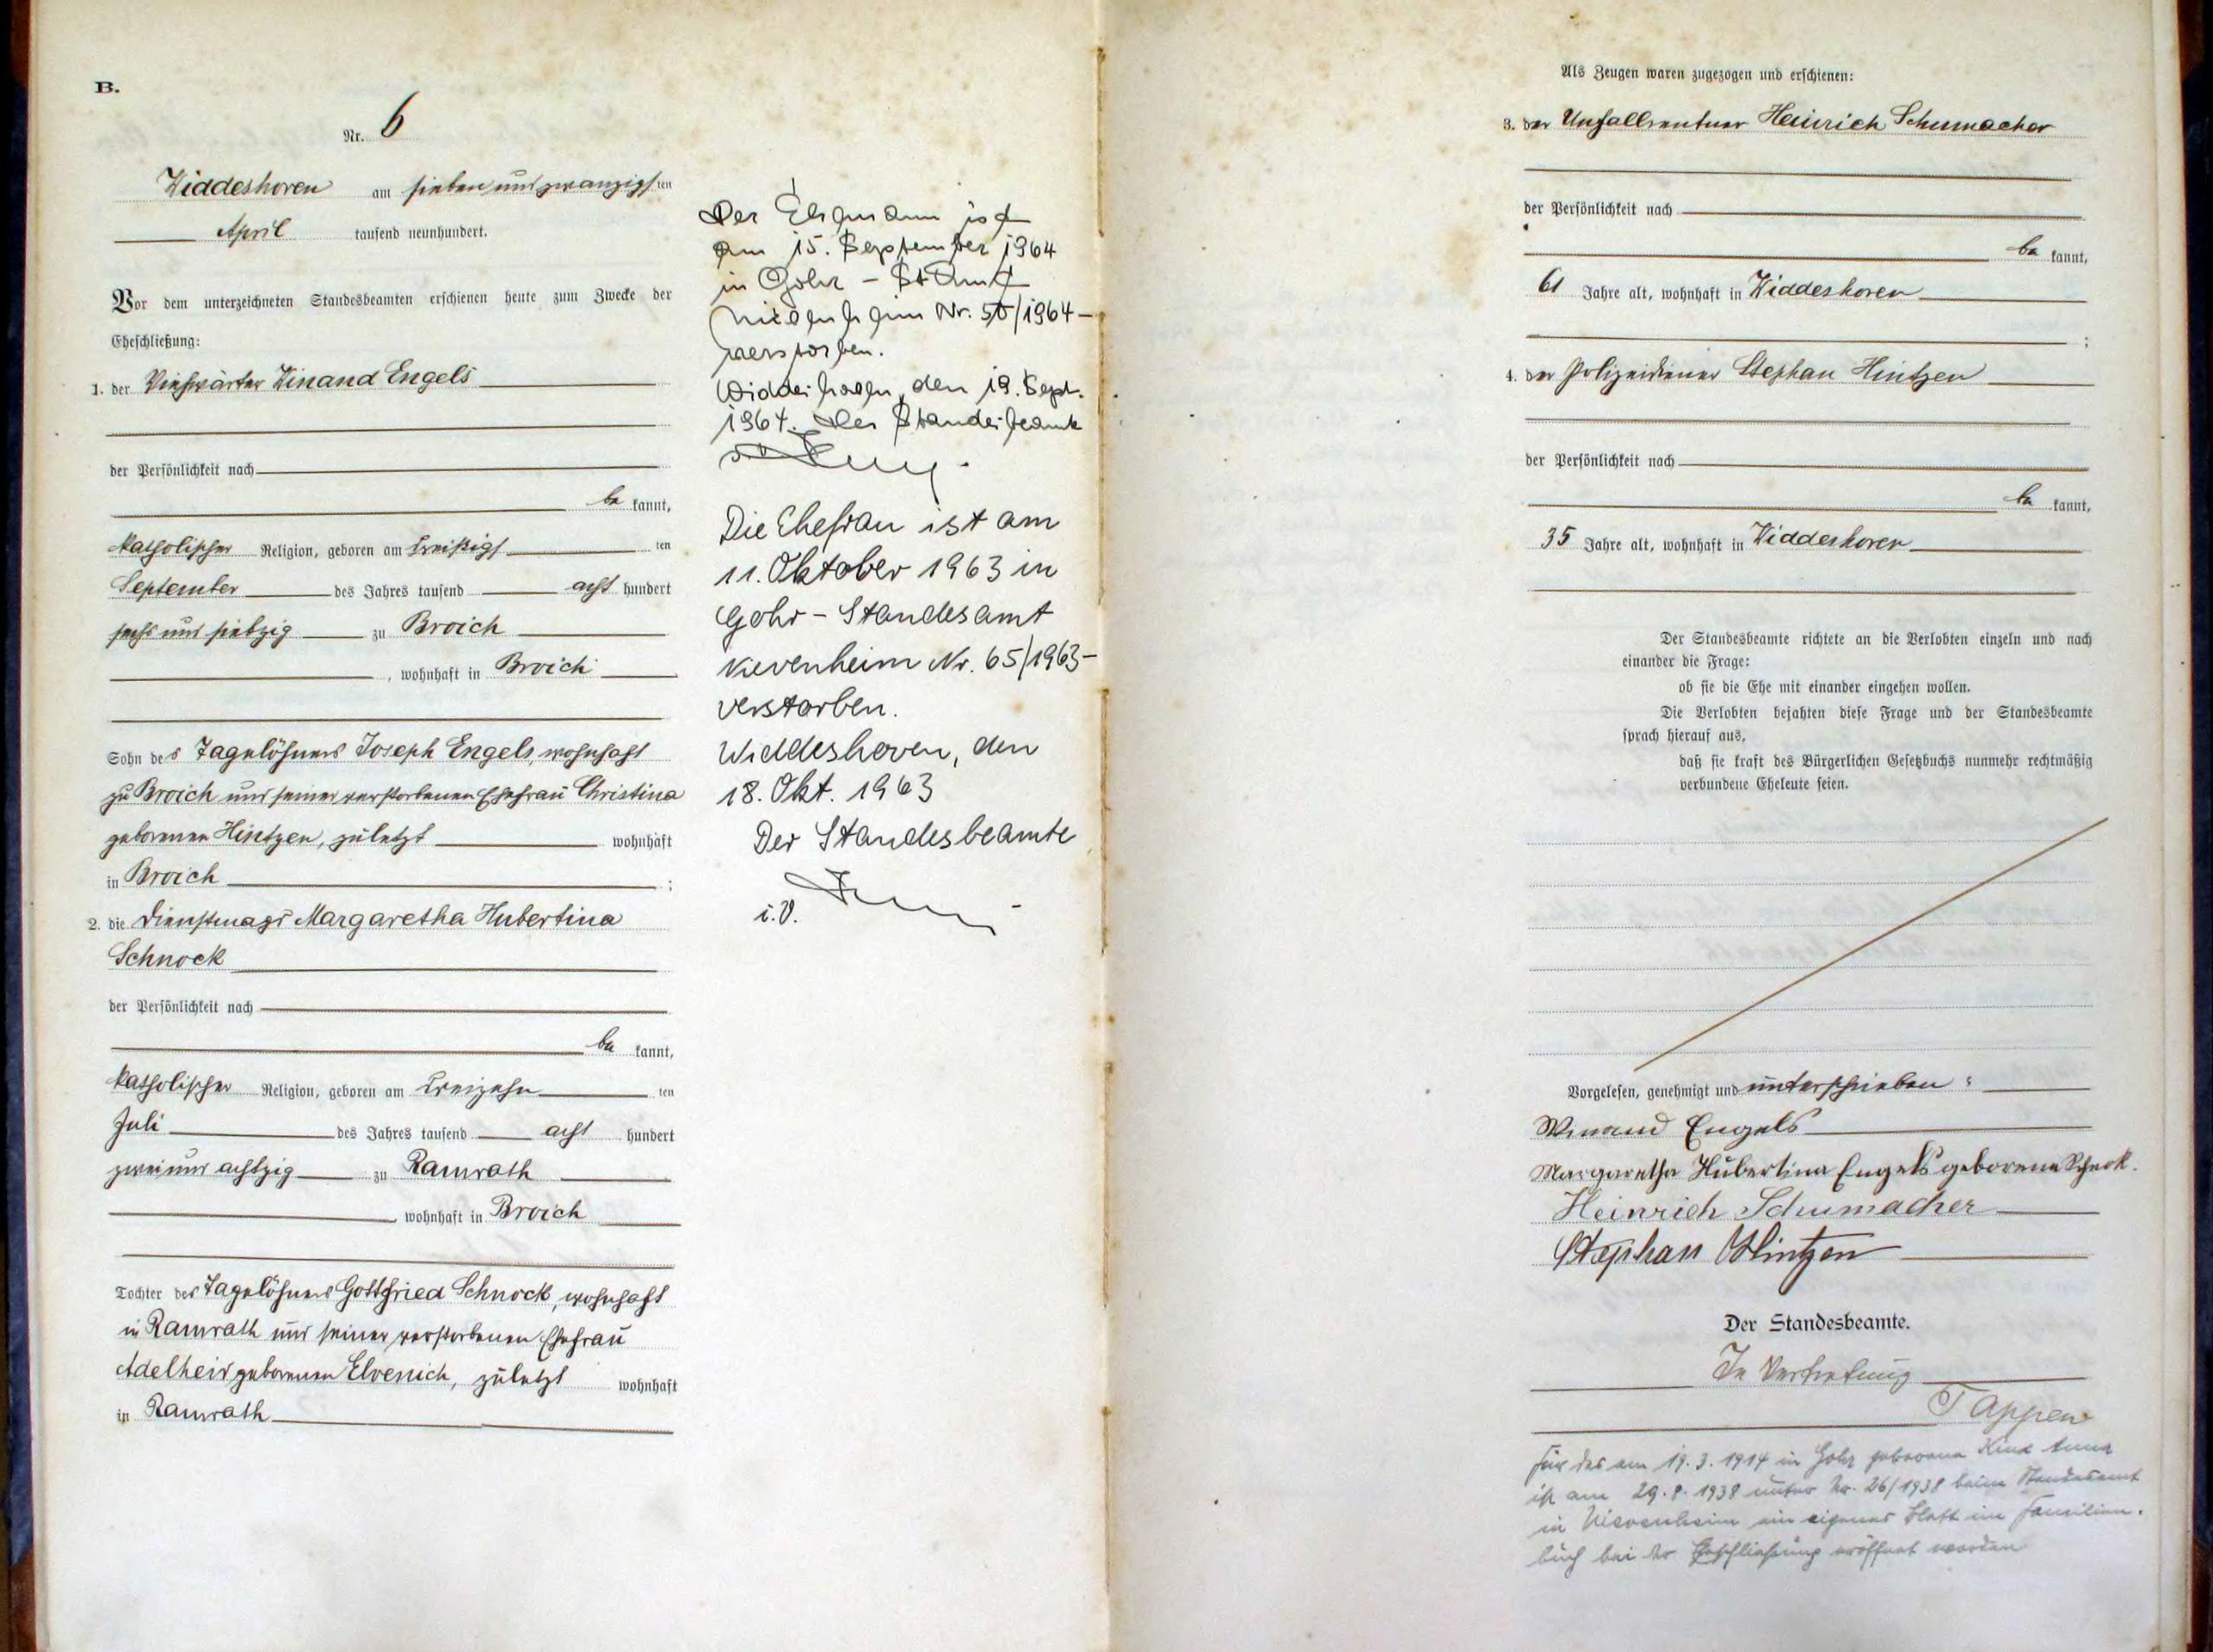 B.
Nr. 6
Widdeshoven am sieben und zwanzigsten
April tausend neunhundert.
Vor dem unterzeichneten Standesbeamten erschienen heute zum Zwecke der
Eheschließung:
1. der Viehwärter Winand Engels
der Persönlichkeit nach
be kannt,
katholischer Religion, geboren am dreißigsten
September des Jahres tausend acht hundert
sechs und siebzig zu Broich
, wohnhaft in Broich
Sohn des Tagelöhners Joseph Engels, wohnhaft
zu Broich und seiner verstorbenen Ehefrau Christina
geborenen Hintzen, zuletzt wohnhaft
in Broich ;
2. die Dienstmagd Margaretha Hubertina
Schnock
der Persönlichkeit nach
be kannt,
katholischer Religion, geboren am dreizehnten
Juli des Jahres tausend acht hundert
zwei und achtzig zu Ramrath
, wohnhaft in Broich
Tochter des Tagelöhners Gottfried Schnock, wohnhaft
in Ramrath und seiner verstorbenen Ehefrau
Adelheid geborenen Elvenich, zuletzt wohnhaft
in Ramrath
Der Ehemann ist
am 15. September 1964
in Gohr - StAmt
Nievenheim Nr. 50/1964 -
verstorben.
Widdeshoven, den 19. Sept.
1964. Der Standesbeamte
Die Ehefrau ist am
11. Oktober 1963 in
Gohr - Standesamt
Nievenheim Nr. 65/1963 -
verstorben.
Widdeshoven, den
18. Okt. 1963
Der Standesbeamte
i.V.
Als Zeugen waren zugezogen und erschienen:
3. der Unfallrentner Heinrich Schumacher
der Persönlichkeit nach
be kannt,
61 Jahre alt, wohnhaft in Widdeshoven
;
4. der Polizeidiener Stephan Hintzen
der Persönlichkeit nach
be kannt,
35 Jahre alt, wohnhaft in Widdeshoven
Der Standesbeamte richtete an die Verlobten einzeln und nach
einander die Frage:
ob sie die Ehe mit einander eingehen wollen.
Die Verlobten bejahten diese Frage und der Standesbeamte
sprach hierauf aus,
daß sie kraft des Bürgerlichen Gesetzbuchs nunmehr rechtmäßig
verbundene Eheleute seien.
Vorgelesen, genehmigt und unterschrieben:
Winand Engels
Margaretha Hubertina Engels geborene Schnok.
Heinrich Schumacher
Stephan Hintzen
Der Standesbeamte.
In Vertretung
Tappen
Für das am 19.3.1914 in Gohr geborene Kind Anna
ist am 29.8.1938 unter Nr. 26/1938 beim Standesamt
in Nievenheim ein eigenes Blatt im Familien-
buch bei der Eheschließung eröffnet worden